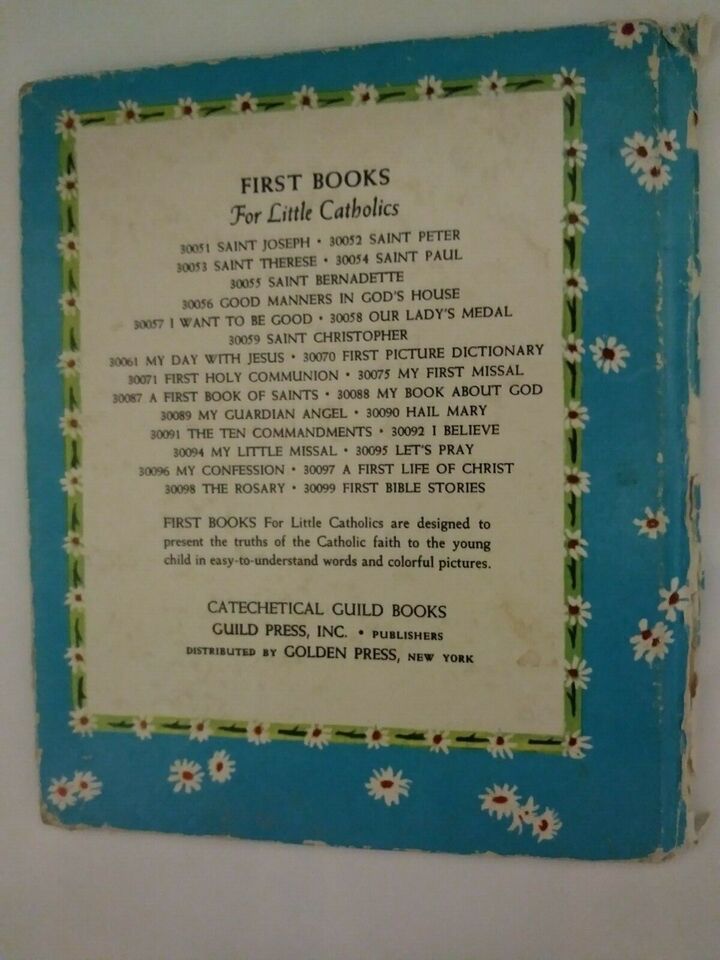 FIRST BOOKS
For Little Catholics
30051 SAINT JOSEPH • 30052 SAINT PETER
30053 SAINT THERESE • 30054 SAINT PAUL
30055 SAINT BERNADETTE
30056 GOOD MANNERS IN GOD'S HOUSE
30057 I WANT TO BE GOOD • 30058 OUR LADY'S MEDAL
30059 SAINT CHRISTOPHER
30061 MY DAY WITH JESUS • 30070 FIRST PICTURE DICTIONARY
30071 FIRST HOLY COMMUNION • 30075 MY FIRST MISSAL
30087 A FIRST BOOK OF SAINTS • 30088 MY BOOK ABOUT GOD
30089 MY GUARDIAN ANGEL • 30090 HAIL MARY
30091 THE TEN COMMANDMENTS • 30092 I BELIEVE
30094 MY LITTLE MISSAL • 30095 LET'S PRAY
30096 MY CONFESSION • 30097 A FIRST LIFE OF CHRIST
30098 THE ROSARY • 30099 FIRST BIBLE STORIES
FIRST BOOKS For Little Catholics are designed to
present the truths of the Catholic faith to the young
child in easy-to-understand words and colorful pictures.
CATECHETICAL GUILD BOOKS
GUILD PRESS, INC. • PUBLISHERS
DISTRIBUTED BY GOLDEN PRESS, NEW YORK